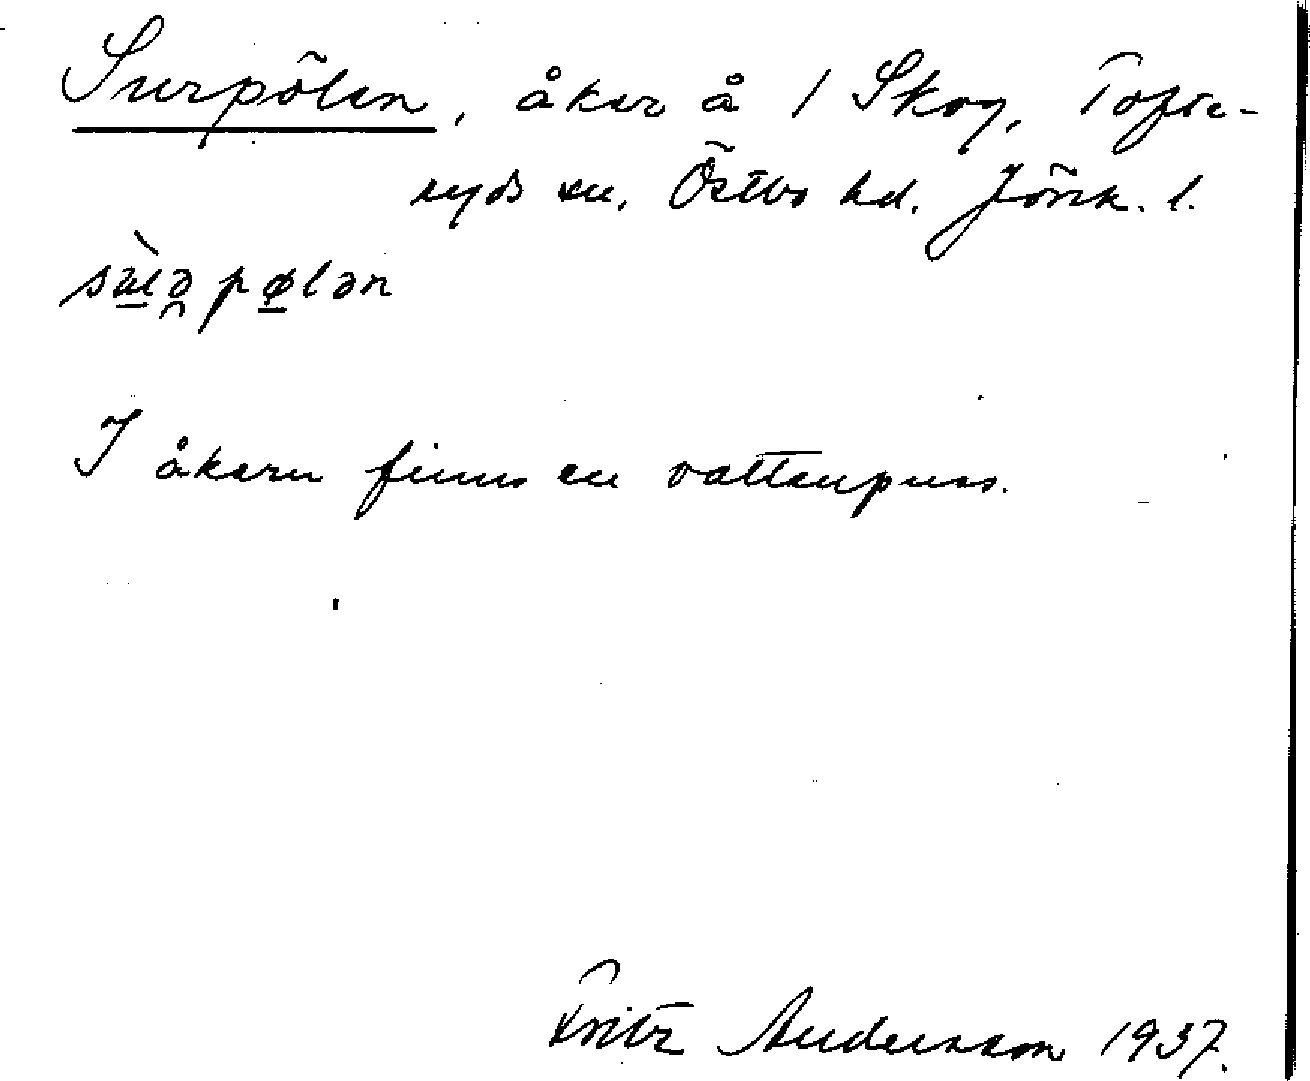 Surpölen, åker å 1 Skog, Tofte-
ryds sn. Östbo hd. Jönk. l.
I åkern finns en vattenpuss.
Fritz Andersson 1937.